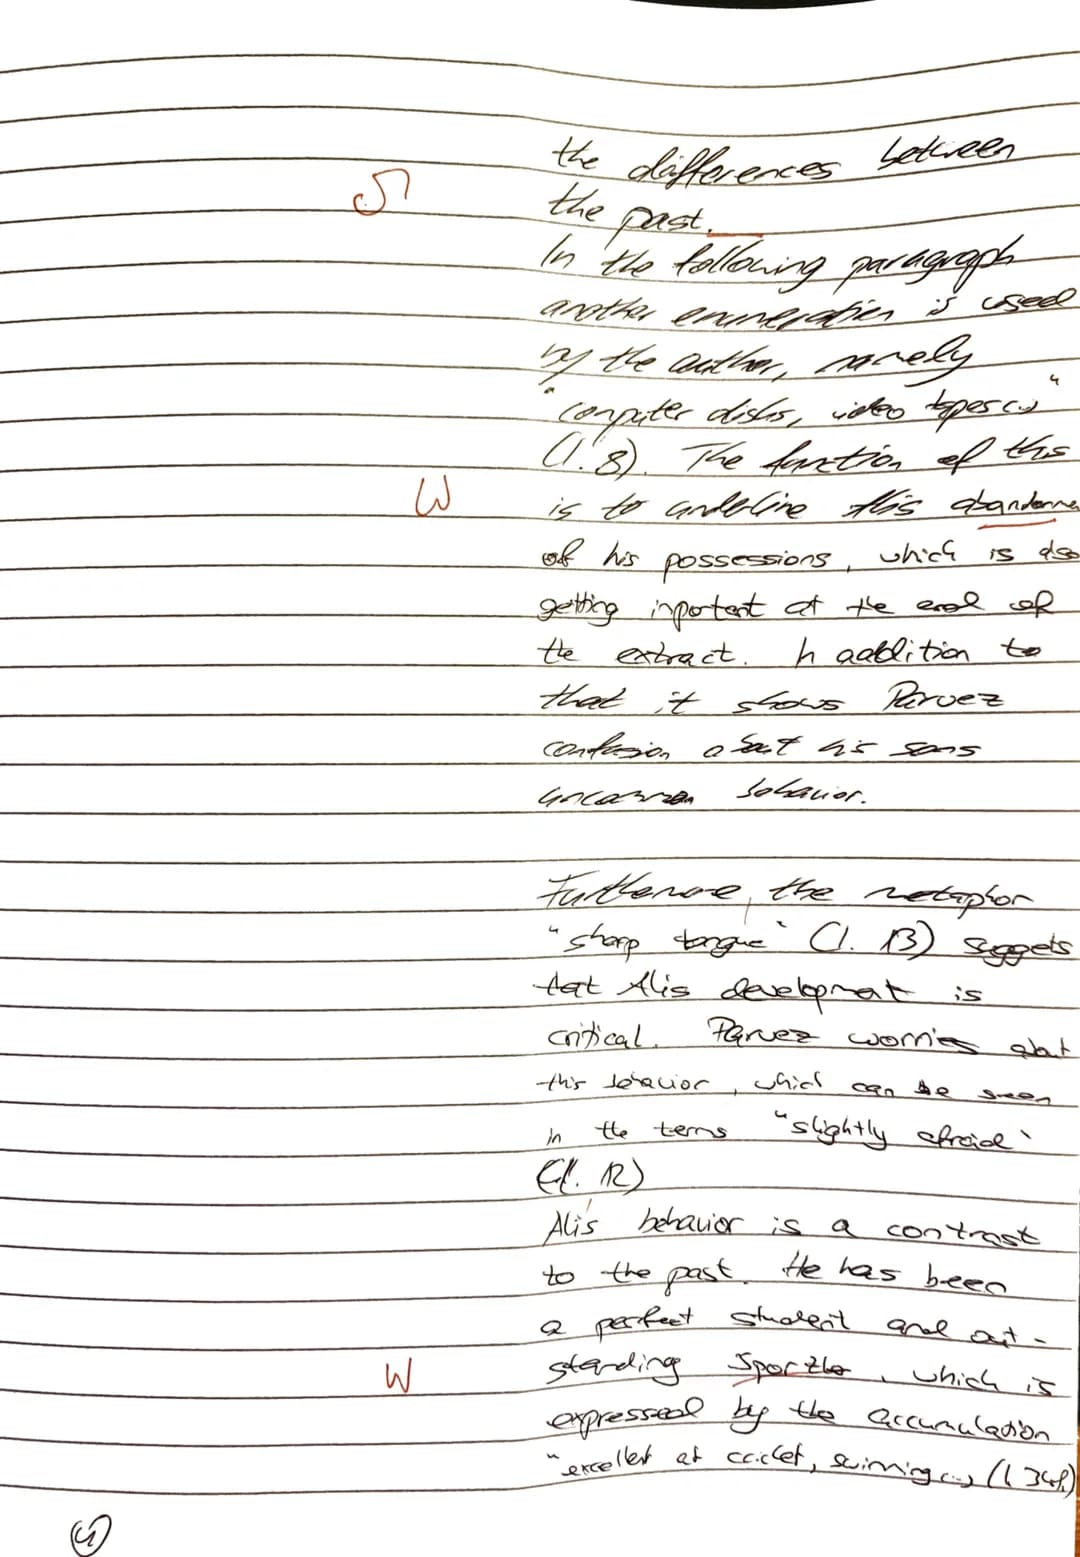 the differences between
the past.
In the following paragraph
another enumeration is used
by the author, namely
"computer disks, video tapes (..)"
(l. 8). The function of this
W is to underline this abandonne
of his possessions, which is also
getting inportant at the end of
the extract. In addition to
that it shows Parvez
confusion about his sons
uncommon behavior.
Furthermore, the metaphor
"sharp tongue" (l. 13) suggets
that Alis development is
critical. Parvez worries about
this behavior, which can be seen
in the terms "slightly afraid"
(l. 12)
Ali's behavior is a contrast
to the past. He has been
a perfect student and out-
W standing, which is
expressed by the accumulation
"excellent at cricket, swimming (..) (l. 34f.)